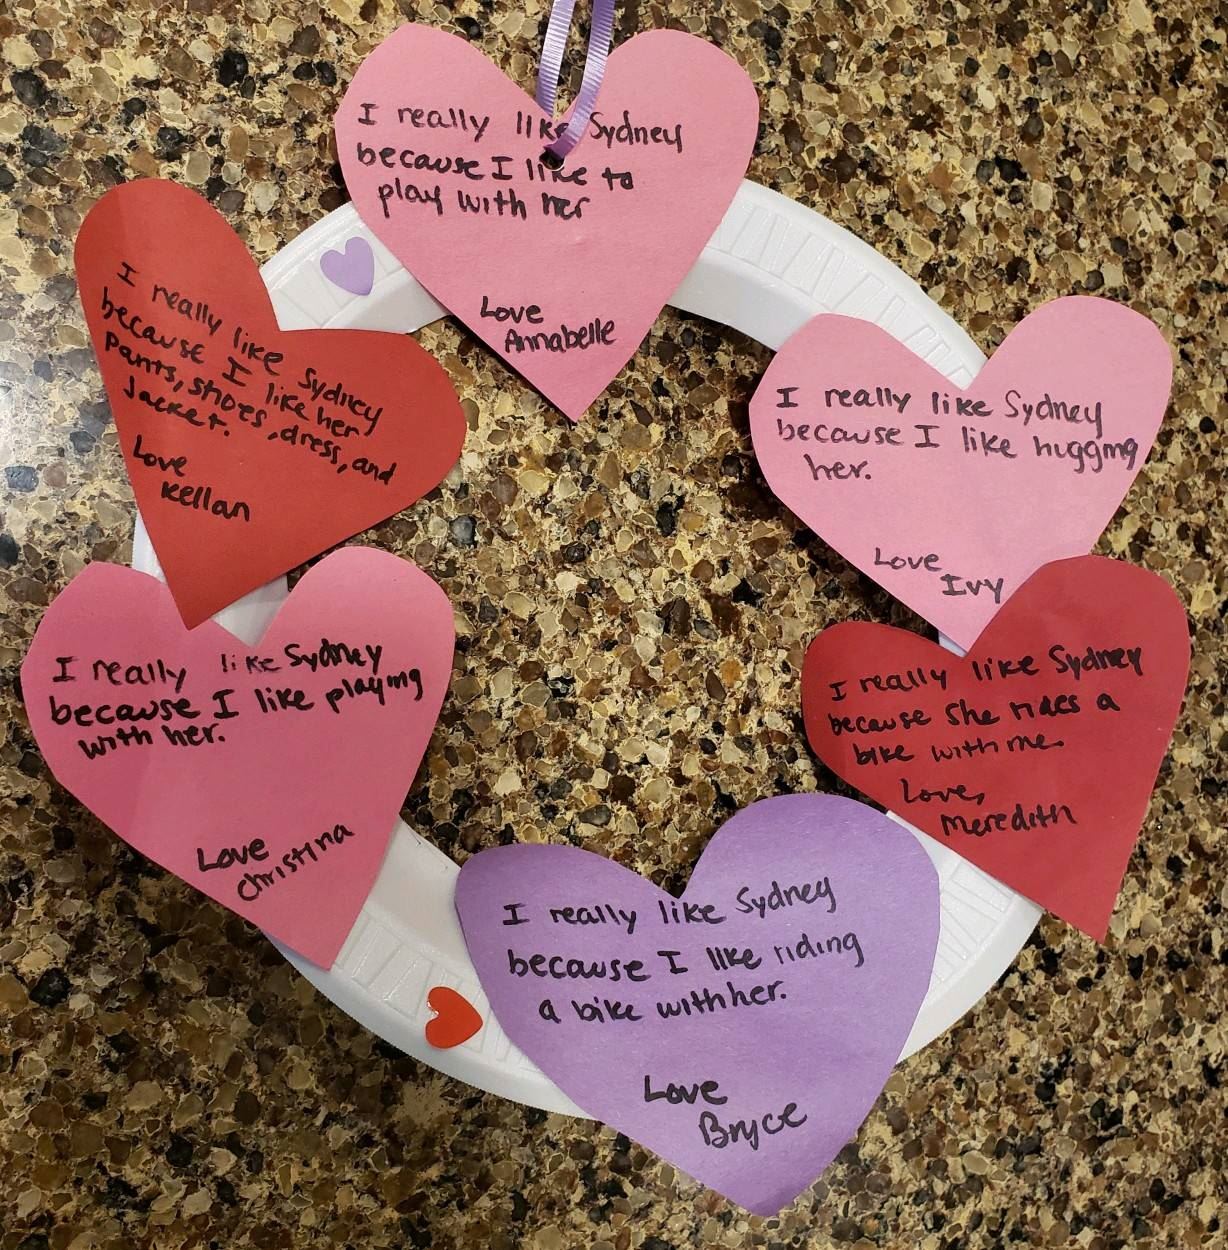 I really like Sydney
because I like to
play with her
Love
Annabelle
I really like Sydney
because I like her
pants, shoes, dress, and
Jacket.
Love
Kellan
I really like Sydney
because I like hugging
her.
Love
Ivy
I really like Sydney
because I like playing
with her.
Love
Christina
I really like Sydney
because she rides a
bike with me.
Love,
Meredith
I really like Sydney
because I like riding
a bike with her.
Love
Bryce